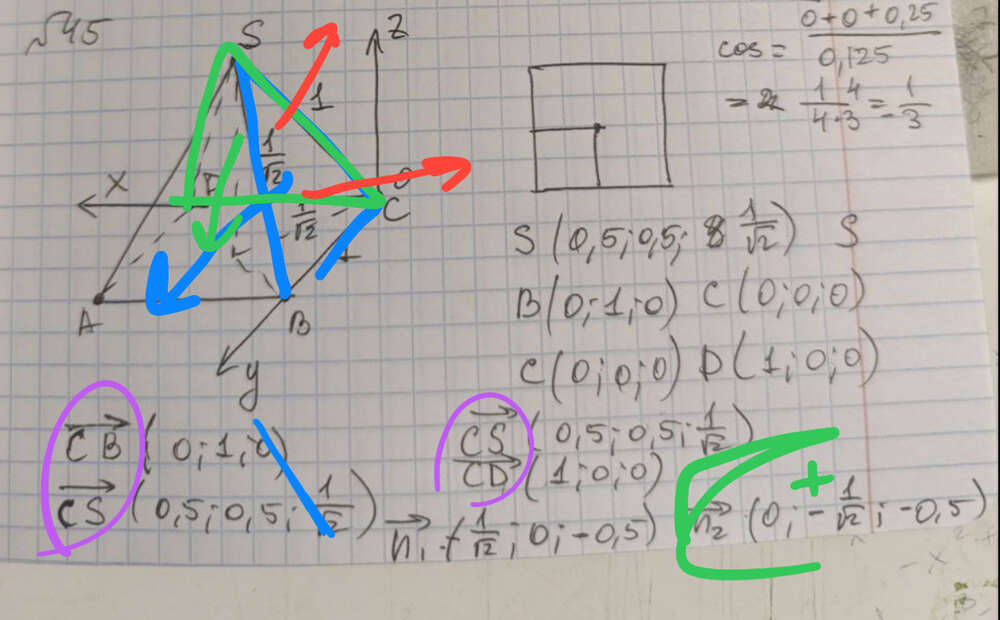 №45
S
z
1
1/√2
x
F
O
1/√2
C
1
A
B
y
cos = (0+0+0,25)/0,125
= 1·4/4·3 = 1/3
S (0,5; 0,5; 1/√2) S
B (0; 1; 0) C (0; 0; 0)
C (0; 0; 0) D (1; 0; 0)
CB (0; 1; 0)
CS (0,5; 0,5; 1/√2)
CS (0,5; 0,5; 1/√2)
CD (1; 0; 0)
n₁ (1/√2; 0; -0,5)
+
n₂ (0; -1/√2; -0,5)